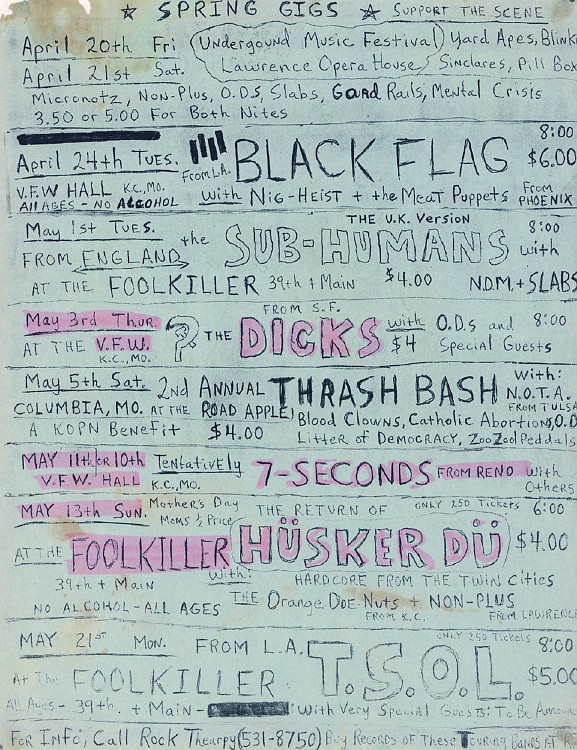 ☆ SPRING GIGS ☆ SUPPORT THE SCENE
April 20th Fri (Undergound Music Festival) Yard Apes, Blink
April 21st Sat. Lawrence Opera House Sinclares, Pill Box
Micronotz, Non-Plus, O.D.S, Slabs, Gaard Rails, Mental Crisis
3.50 or 5.00 For Both Nites
April 24th TUES. From L.A. BLACK FLAG 8:00 $6.00
V.F.W HALL K.C., MO. with NIG-HEIST + the MEAT PUPPETS From
All AGES - NO ALCOHOL PHOENIX
May 1st TUES. the SUB-HUMANS THE U.K. VERSION 8:00
FROM ENGLAND with
AT THE FOOLKILLER 39th + Main $4.00 N.D.M. + SLABS
May 3rd Thur. ? THE DICKS FROM S.F. with O.D.s and 8:00
AT THE V.F.W. K.C., MO. $4 Special Guests
May 5th Sat. 2nd ANNUAL THRASH BASH With:
COLUMBIA, MO. AT THE ROAD APPLE N.O.T.A. FROM TULSA
A KOPN BENEFIT $4.00 Blood Clowns, Catholic Abortions, O.D
Litter of DEMOCRACY, ZooZool Peddals
MAY 11th OR 10th Tentatively 7-SECONDS FROM RENO with
V.F.W. HALL K.C., MO. Others
MAY 13th SUN. Mother's Day THE RETURN OF ONLY 250 Tickets 6:00
Moms ½ Price
AT THE FOOLKILLER HÜSKER DÜ $4.00
39th + Main With: HARDCORE FROM THE TWIN CITIES
NO ALCOHOL - ALL AGES THE Orange Doe-Nuts + NON-PLUS
FROM K.C. FROM LAWRENC
MAY 21st Mon. FROM L.A. T.S.O.L. ONLY 250 Tickets 8:00
At The FOOLKILLER $5.00
All Ages - 39th. + Main - With Very Special Guests: To Be Announ
FOR INFO, CALL Rock Thearpy (531-8750) Buy RECORDS OF These TOURING BANDS AT R